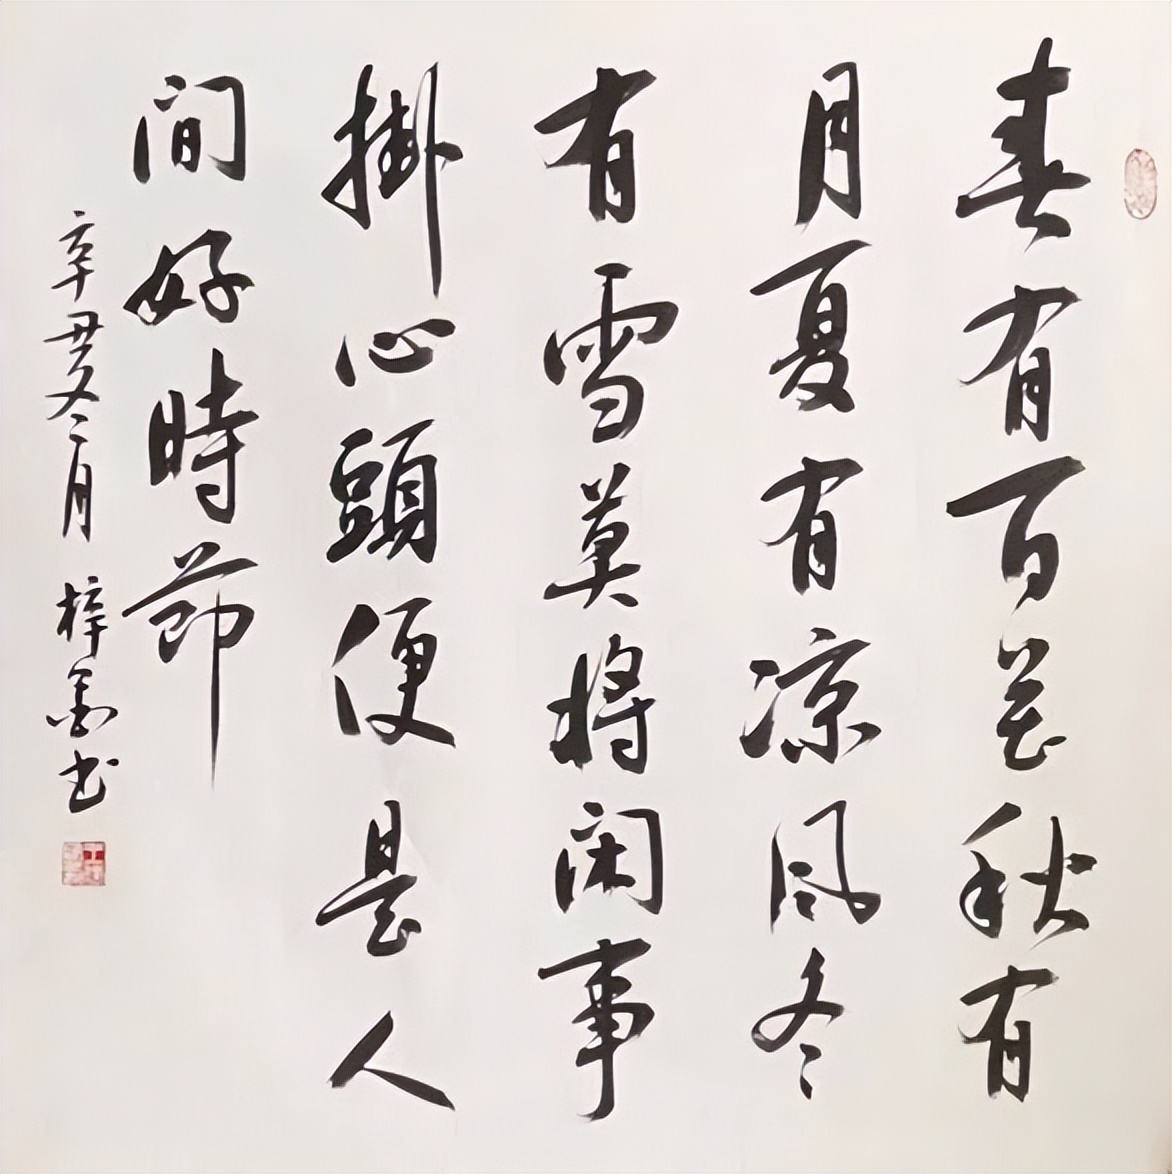 春有百花秋有
月夏有凉风冬
有雪莫将闲事
掛心頭便是人
间好時節
辛丑冬月 梓墨书